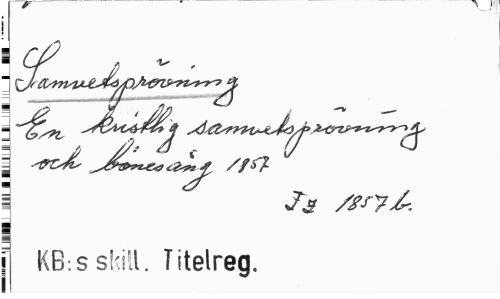 Samvetsprövning
En kristlig samvetsprövning
och bönesång 1857
Fz 1857 b.
KB:s skill. Titelreg.